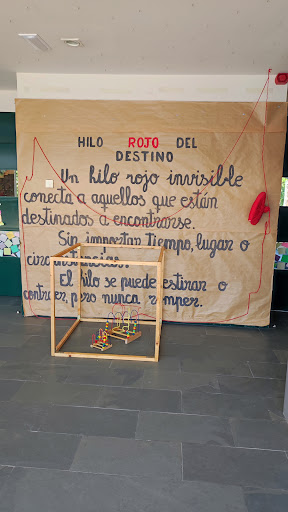 HILO ROJO DEL
DESTINO
Un hilo rojo invisible
conecta a aquellos que están
destinados a encontrarse.
Sin importar Tiempo, lugar o
circunstancias.
El hilo se puede estirar o
contraer, pero nunca romper.